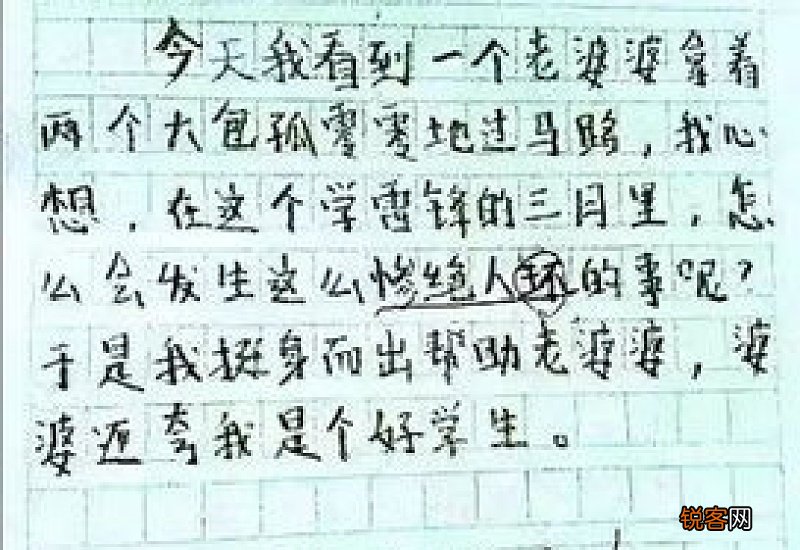 今天我看到一个老婆婆拿着
两个大包孤零零地过马路，我心
想，在这个学雷锋的三月里，怎
么会发生这么惨绝人环的事呢？
于是我挺身而出帮助老婆婆，婆
婆还夸我是个好学生。
锐客网